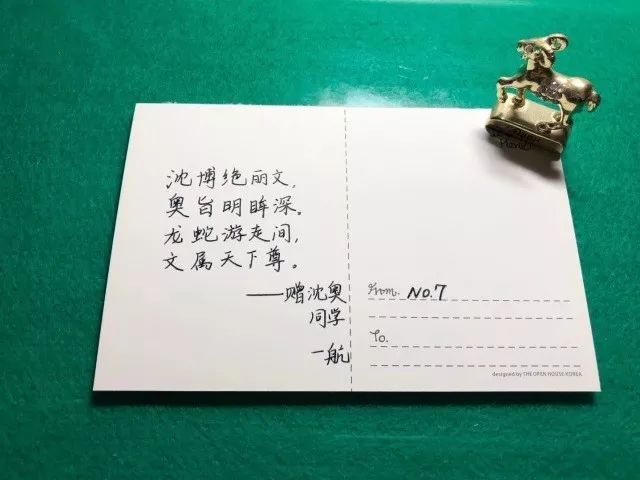 沈博绝丽文,
奥旨明眸深。
龙蛇游走间,
文属天下尊。
——赠沈奥
同学
一航
From. NO.7
To.
designed by THE OPEN HOUSE KOREA